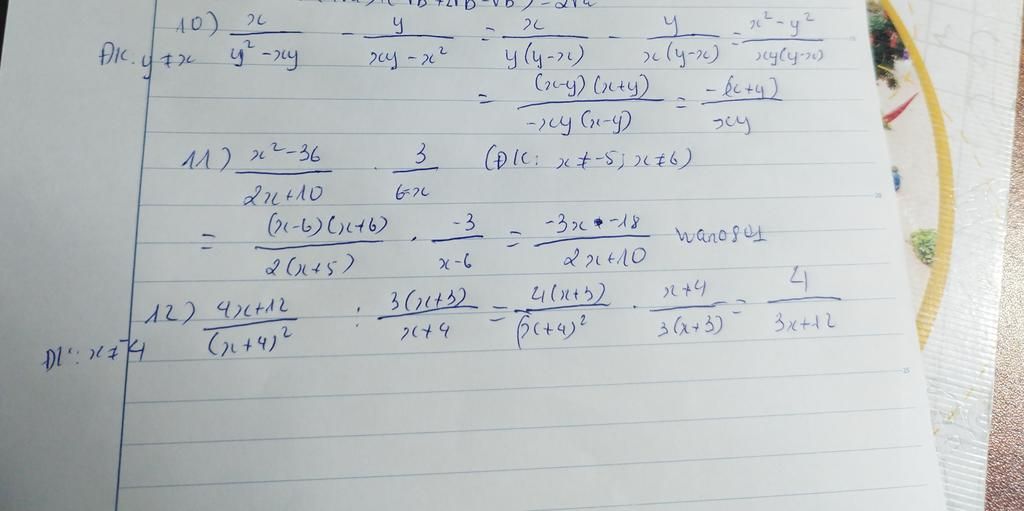 10) x/(y² - xy) - y/(xy - x²) = x/(y(y-x)) - y/(x(y-x)) = (x² - y²)/(xy(y-x))
ĐK: y ≠ x
= ((x-y)(x+y))/(-xy(x-y)) = (-(x+y))/(xy)
11) (x² - 36)/(2x+10) . 3/(6-x) (ĐK: x ≠ -5; x ≠ 6)
= ((x-6)(x+6))/(2(x+5)) . (-3)/(x-6) = (-3x - 18)/(2x+10)
12) (4x+12)/((x+4)²) : (3(x+3))/(x+4) = (4(x+3))/((x+4)²) . (x+4)/(3(x+3)) = 4/(3x+12)
ĐK: x ≠ -4